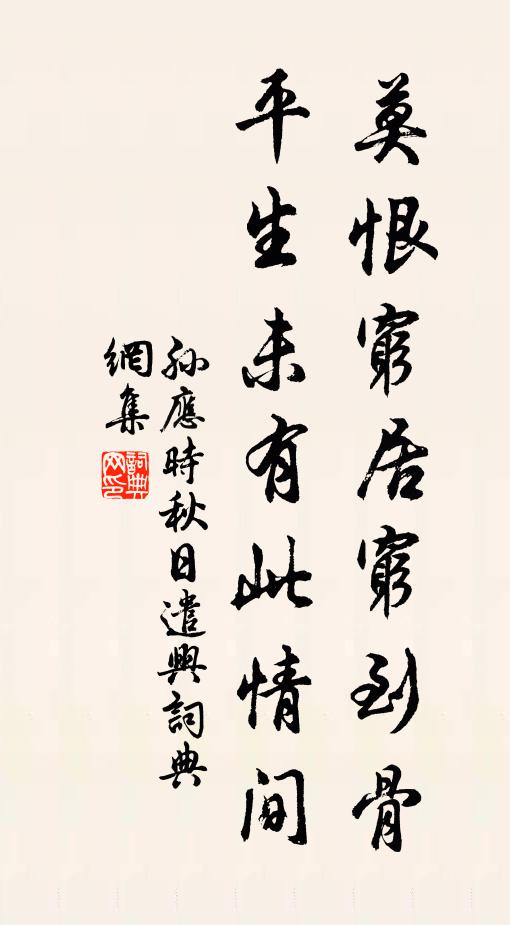 莫恨窮居窮到骨
平生未有此情间
孫應時秋日遣興詞典
網集
詞典網印